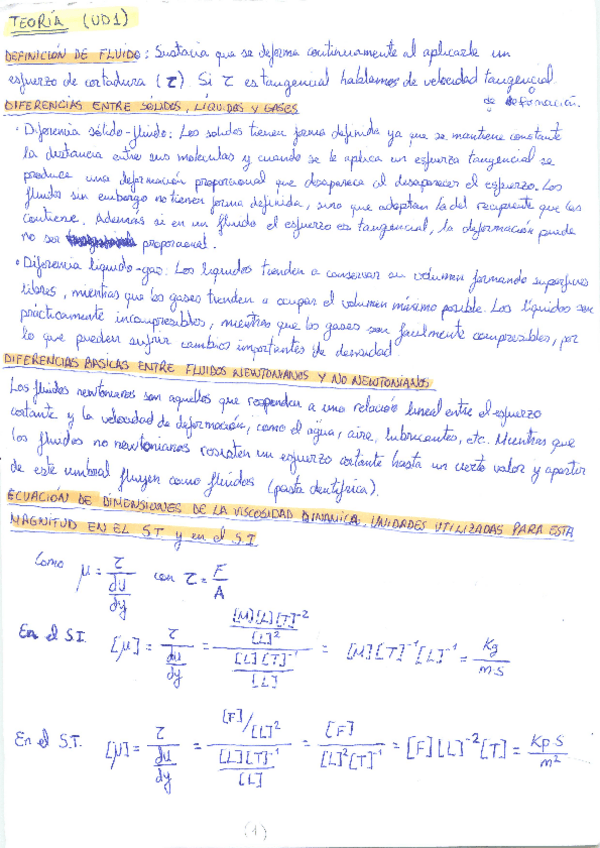 TEORÍA (UD1)
DEFINICIÓN DE FLUIDO: Sustacia que se deforma continuamente al aplicarle un
esfuerzo de cortadura (τ). Si τ es tangencial hablamos de velocidad tangencial
de deformación.
DIFERENCIAS ENTRE SÓLIDOS, LÍQUIDOS Y GASES
· Diferencia sólido-fluido: Los solidos tienen forma definida ya que se mantiene constante
la distancia entre sus moleculas y cuando se le aplica un esfuerzo tangencial se
produce una deformación proporcional que desaparece al desaparecer el esfuerzo. Los
fluidos sin embargo no tienen forma definida, sino que adoptan la del recipiente que los
contiene. Además si en un fluido el esfuerzo es tangencial, la deformación puede
no ser proporcional.
· Diferencia líquido-gas: Los líquidos tienden a conservar su volumen formando superficies
libres, mientras que los gases tienden a ocupar el volumen máximo posible. Los líquidos son
prácticamente incompresibles, mientras que los gases son facilmente compresibles, por
lo que pueden sufrir cambios importantes de densidad.
DIFERENCIAS BASICAS ENTRE FLUIDOS NEWTONIANOS Y NO NEWTONIANOS
Los fluidos newtonianos son aquellos que responden a una relación lineal entre el esfuerzo
cortante y la velocidad de deformación, como el agua, aire, lubricantes, etc. Mientras que
los fluidos no newtonianos resisten un esfuerzo cortante hasta un cierto valor y apartir
de este umbral fluyen como fluidos (pasta dentífrica).
ECUACIÓN DE DIMENSIONES DE LA VISCOSIDAD DINAMICA. UNIDADES UTILIZADAS PARA ESTA
MAGNITUD EN EL ST y en el S.I.
Como μ = τ / (du/dy) con τ = F/A
En el S.I. [μ] = τ / (du/dy) = ([M][L][T]⁻² / [L]²) / ([L][T]⁻¹ / [L]) = [M][T]⁻¹[L]⁻¹ = Kg / m·s
En el S.T. [μ] = τ / (du/dy) = ([F]/[L]²) / ([L][T]⁻¹ / [L]) = [F] / [L]²[T]⁻¹ = [F][L]⁻²[T] = Kp·S / m²
(1)